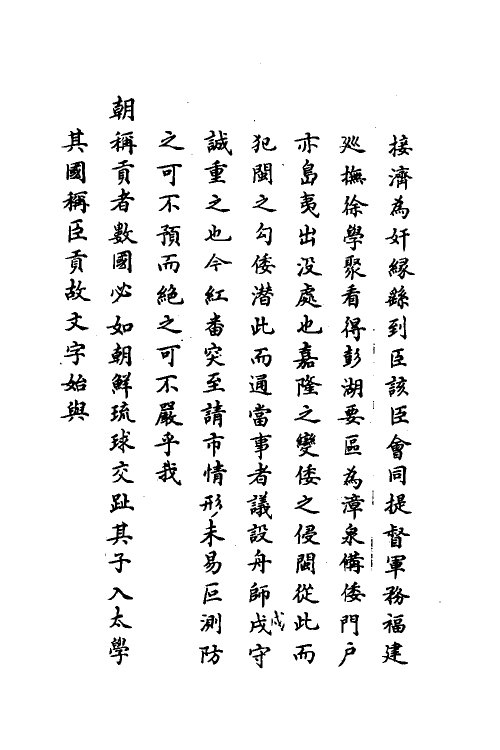 接濟為奸緣繇到臣該臣會同提督軍務福建
廵撫徐學聚看得彭湖要區為漳泉備倭門户
亦島夷出没處也嘉隆之變倭之侵閩從此而
犯閩之勾倭潜此而通當事者議設舟師戍守
誠重之也今紅畨突至請市情形未易叵測防
之可不預而絶之可不嚴乎我
朝稱貢者數國必如朝鮮琉球交趾其子入太學
其國稱臣貢故文字始與